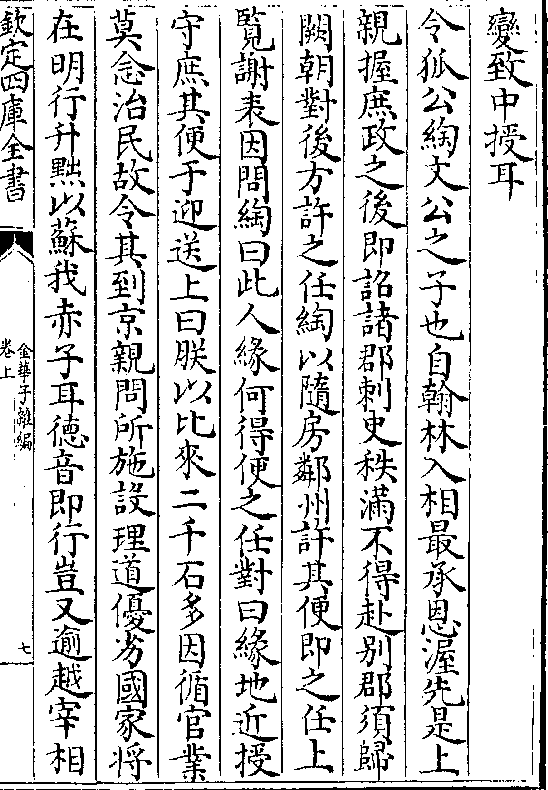 變致中授耳
令狐公綯文公之子也自翰林入相最承恩渥先是上
親握庶政之後即詔諸郡刺史秩滿不得赴别郡須歸
闕朝對後方許之任綯以隨房鄰州許其便即之任上
覽謝表因問綯曰此人緣何得便之任對曰緣地近授
守庶其便于迎送上曰朕以比來二千石多因循官業
莫念治民故令其到京親問所施設理道優劣國家將
在明行升黜以蘇我赤子耳德音即行豈又逾越宰相
欽定四庫全書
金華子雜編
卷上
七